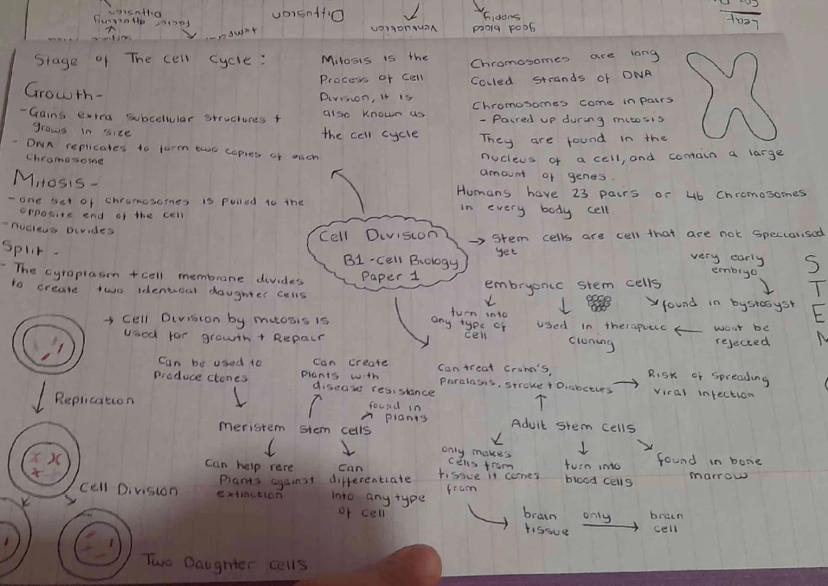 Diffusion
Ventilation
good blood
supply
Stage of The cell cycle :
Growth -
- Gains extra subcellular structures +
grows in size
- DNA replicates to form two copies of each
chromosome
Mitosis -
- one set of chromosomes is pulled to the
opposite end of the cell
- nucleus Divides
Split -
- The cytoplasm + cell membrane divides
to create two identical daughter cells
Mitosis is the
Process of cell
Division, it is
also known as
the cell cycle
Chromosomes are long
Coiled strands of DNA
Chromosomes come in pairs
- Paired up during mitosis
They are found in the
nucleus of a cell, and contain a large
amount of genes.
Humans have 23 pairs or 46 chromosomes
in every body cell
Cell Division
B1 - cell Biology
Paper 1
→ Stem cells are cell that are not specialised
yet
S
T
E
M
embryonic stem cells
very early
embryo
turn into
any type of
cell
used in theraputic
cloning
found in bystosyst
wont be
rejected
→ Cell Division by mitosis is
used for growth + Repair
Can be used to
Produce clones
Can create
Plants with
disease resistance
found in
plants
Meristem stem cells
Can help rare
Plants against
extinction
can
differentiate
into any type
of cell
Can treat Crohn's,
Paralasis, stroke + Diabeties
Risk of spreading
viral infection
Adult stem cells
only makes
cells from
tissue it comes
from
turn into
blood cells
found in bone
marrow
brain
tissue
only
brain
cell
Replication
Cell Division
Two Daughter cells